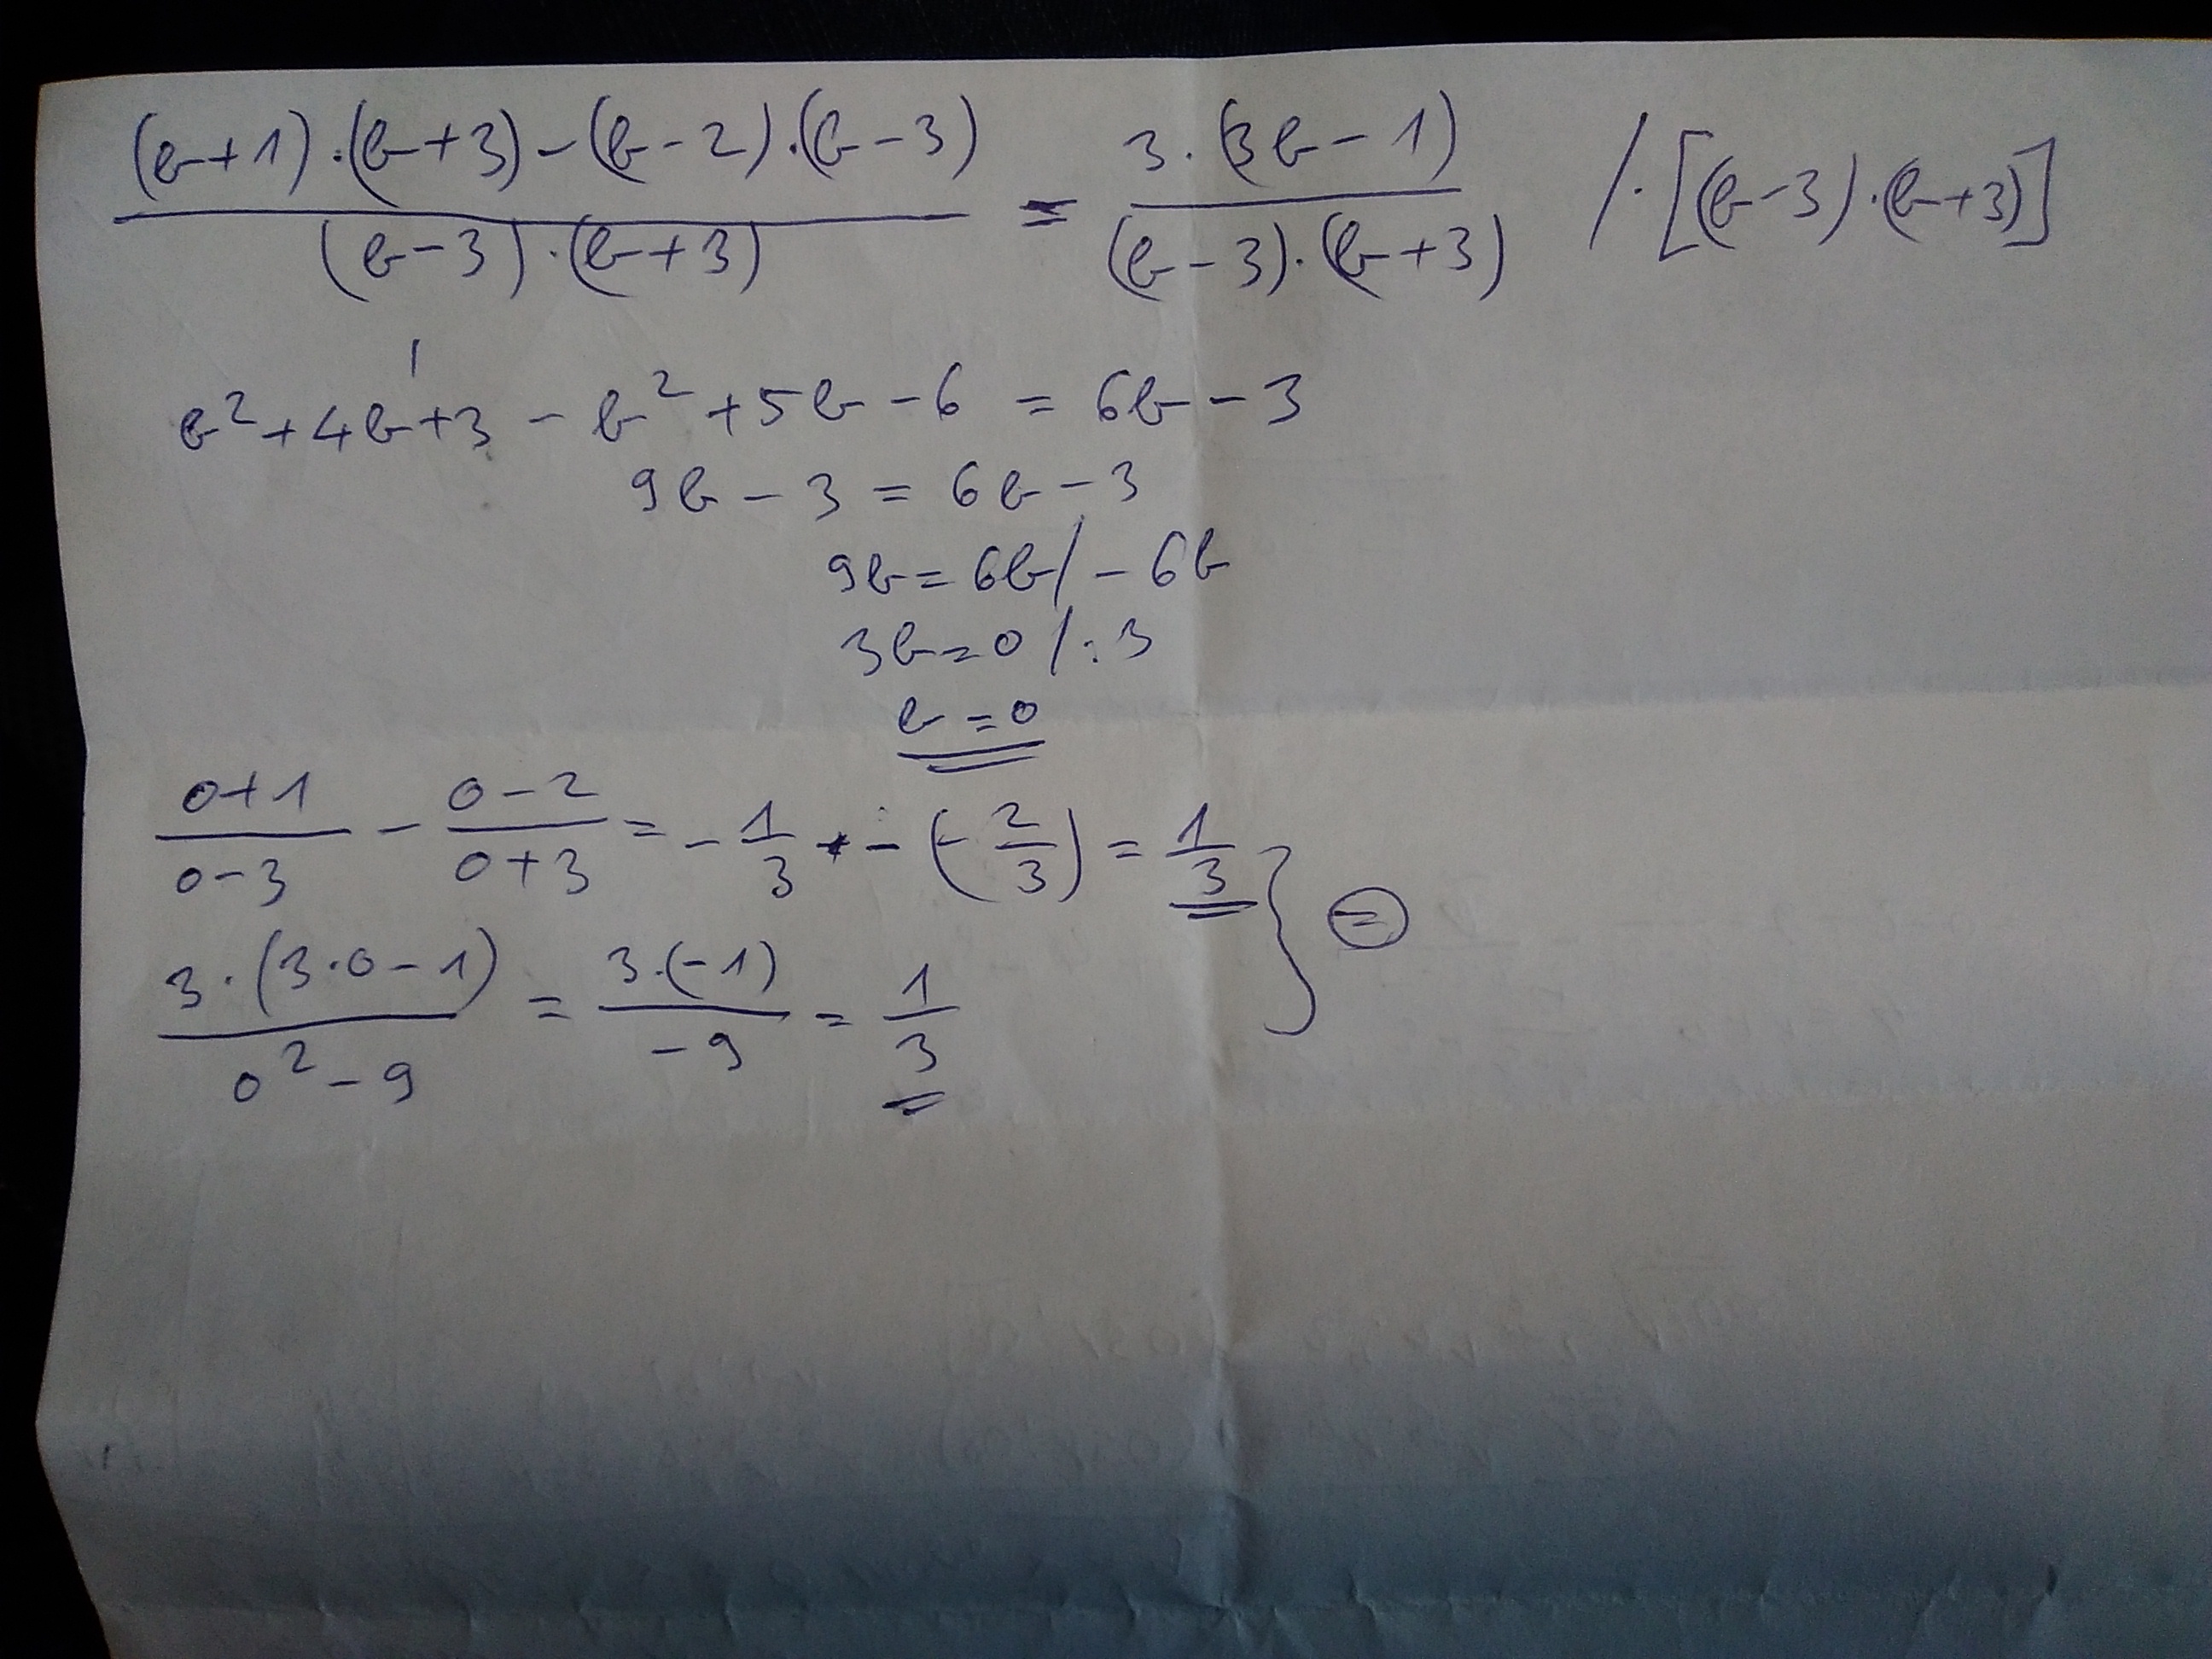 (b+1)·(b+3)-(b-2)·(b-3) / (b-3)·(b+3) = 3·(3b-1) / (b-3)·(b+3) /·[(b-3)·(b+3)]
b²+4b+3 - b²+5b-6 = 6b-3
9b-3 = 6b-3
9b=6b/-6b
3b=0/:3
b=0
0+1/0-3 - 0-2/0+3 = -1/3 - (-2/3) = 1/3 } =
3·(3·0-1)/0²-9 = 3·(-1)/-9 = 1/3